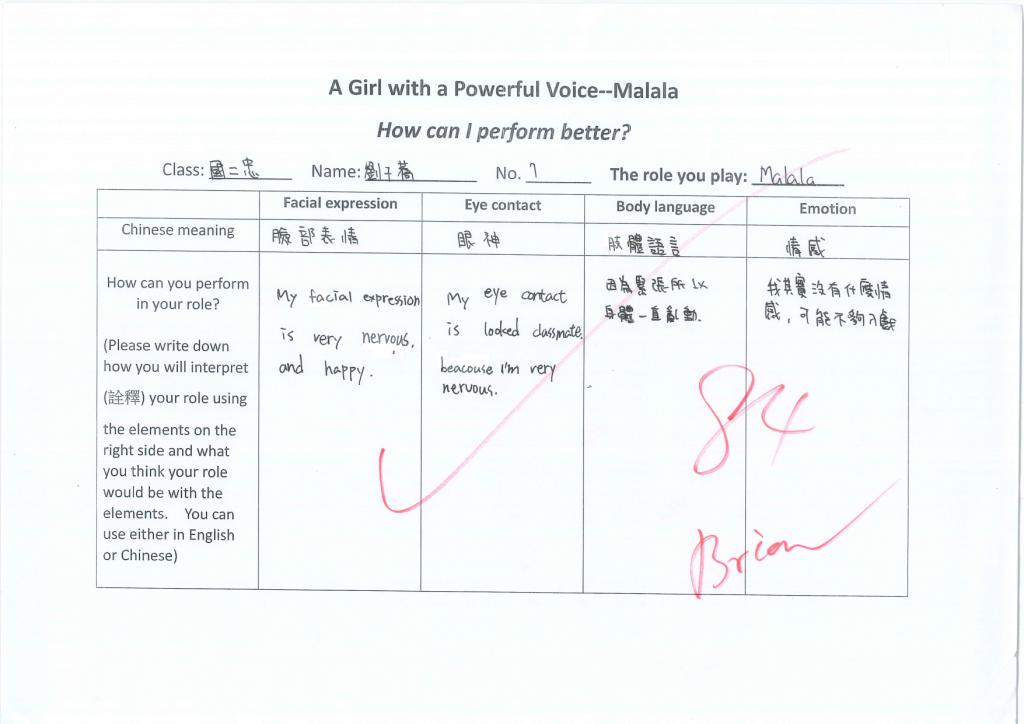 A Girl with a Powerful Voice--Malala
How can I perform better?
Class: 國二忠 Name: 劉子蕎 No. 7 The role you play: Malala
Facial expression Eye contact Body language Emotion
Chinese meaning 臉部表情 眼神 肢體語言 情感
How can you perform
in your role?
(Please write down
how you will interpret
(詮釋) your role using
the elements on the
right side and what
you think your role
would be with the
elements. You can
use either in English
or Chinese)
My facial expression
is very nervous.
and happy.
My eye contact
is looked classmate.
beacouse I'm very
nervous.
因為緊張所以
身體一直亂動.
我其實沒有什麼情
感，可能不夠入戲
84
Brian